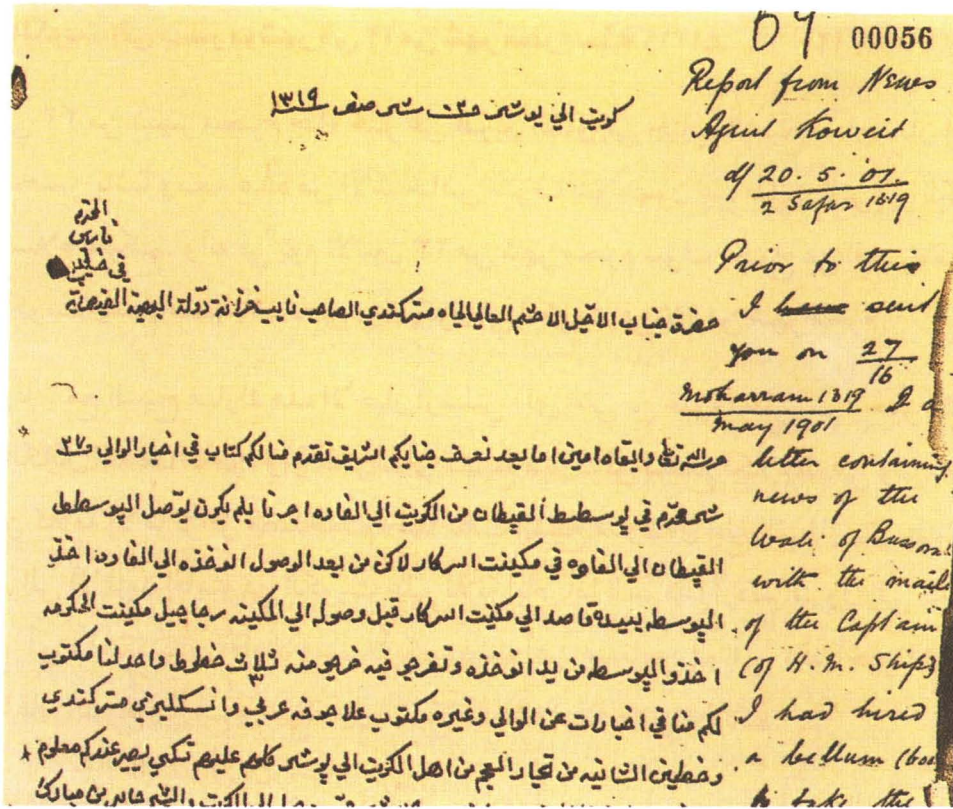 04 00056
Report from News
Agent Koweit
d/ 20. 5. '01.
2 Safar 1319
كويت الي بوشهر ٢ شهر صفر ١٣١٩
في
Prior to this
I have sent
you on 27
16
Moharram 1319. I a
May 1901
letter containing
news of the
Wali of Busora
with the mails
of the Captain
(of H. M. Ships)
I had hired
a bellum (boa
to take the
حضرة جناب الاجل الاحشم العالي الجاه مستر كندي الصاحب نايب دولة البهية القيصرية
والبقاه امين اما بعد نعرف جنابكم الشريف تقدم منا لكم كتاب في اخبار الوالي ٢٧
شهر محرم في بوسطط القبطان من الكويت الي الفاو اجرنا بلم يكون يوصل البوسطط
القبطان الي الفاوه في مكينت السركار لاكن من بعد الوصول النوخذه الي الفاوه اخذ
البوسطه بيده قاصد الي مكينت السركار قبل وصوله الي المكينه مكينت الحكومه
اخذو البوسطه من يد النوخذه وتفرجو فيه خرجو منه ثلاث خطوط واحد لنا مكتوب
لكم منا في اخبارات عن الوالي وغيره مكتوب عربي وانكليزي مستر كندي
وخطين الثانيه من تجار العجم من اهل الكويت الي بوشهر عليهم عندكم معلوم